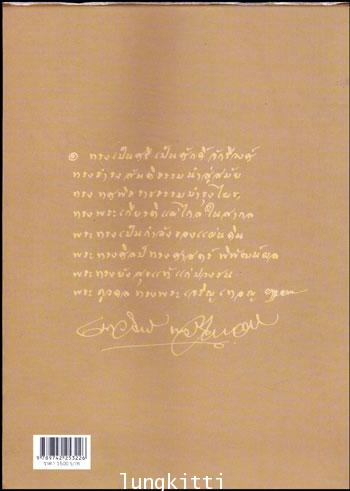 ๏ ทรงเป็นศรี เป็นศักดิ์ จักรีวงศ์
ทรงธำรง สันติธรรม นำสู่สมัย
ทรง ทศพิธราชธรรม บำรุงไผท
ทรงพระเกียรติ แผ่ไกล ในสากล
พระทรงเป็นกำลังของแผ่นดิน
พระทรงศิลป์ ทรงศาสตร์ พิพัฒน์ผล
พระทรงยัง สุขแท้ แก่ปวงชน
พระ ภูวดล ทรงพระเจริญ
9 789742 253226
ราคา 1500 บาท
lungkitti